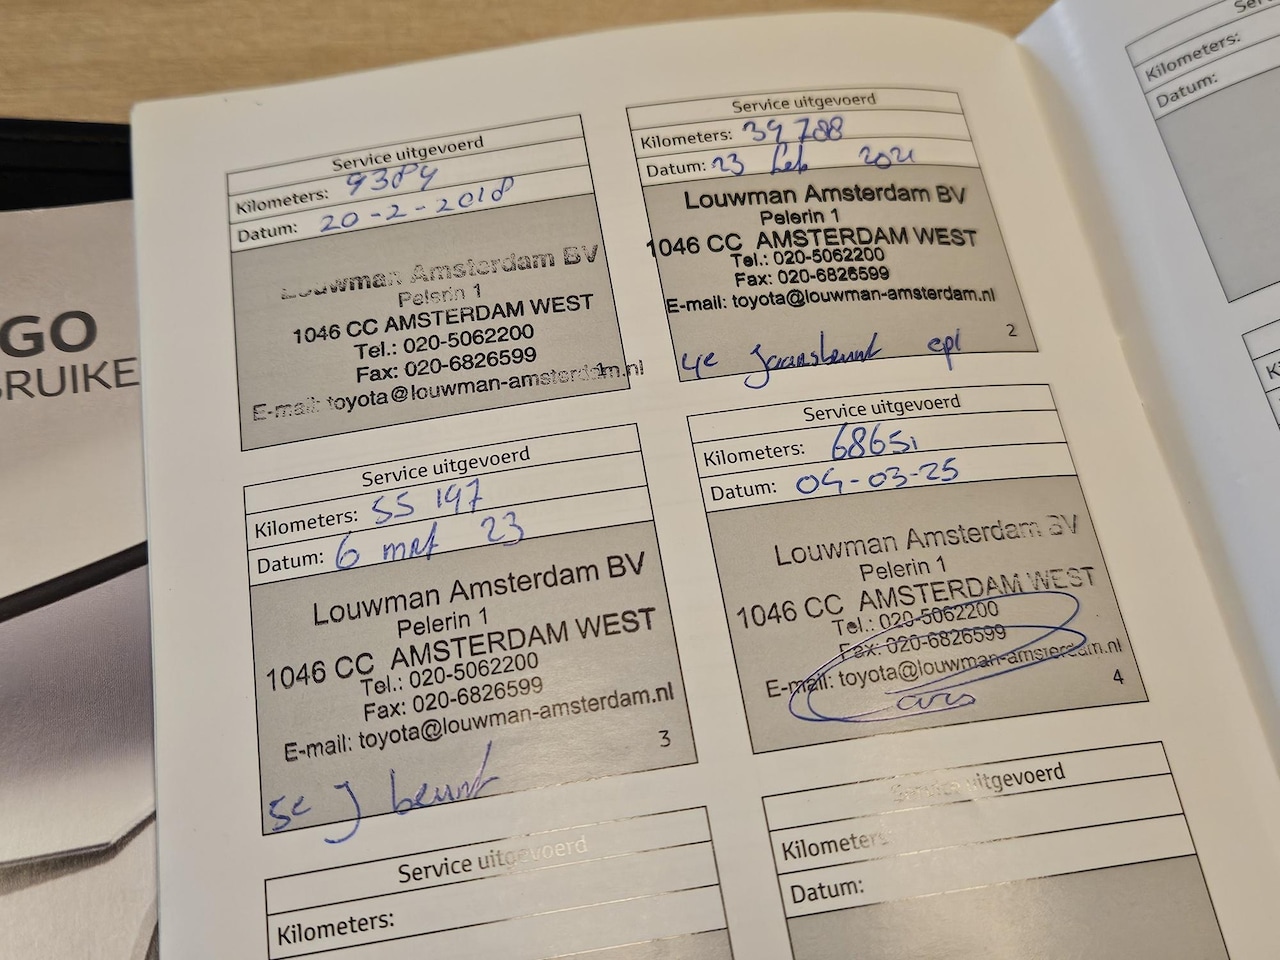 GO
BRUIKE
Service uitgevoerd
Kilometers: 9384
Datum: 20-2-2018
Louwman Amsterdam BV
Pelerin 1
1046 CC AMSTERDAM WEST
Tel.: 020-5062200
Fax: 020-6826599
E-mail: toyota@louwman-amsterdam.nl
1
Service uitgevoerd
Kilometers: 39788
Datum: 23 feb 2021
Louwman Amsterdam BV
Pelerin 1
1046 CC AMSTERDAM WEST
Tel.: 020-5062200
Fax: 020-6826599
E-mail: toyota@louwman-amsterdam.nl
2
4e
Service uitgevoerd
Kilometers: 55 197
Datum: 6 mrt 23
Louwman Amsterdam BV
Pelerin 1
1046 CC AMSTERDAM WEST
Tel.: 020-5062200
Fax: 020-6826599
E-mail: toyota@louwman-amsterdam.nl
3
5e J beurt
Service uitgevoerd
Kilometers: 68651
Datum: 04-03-25
Louwman Amsterdam BV
Pelerin 1
1046 CC AMSTERDAM WEST
Tel.: 020-5062200
Fax: 020-6826599
E-mail: toyota@louwman-amsterdam.nl
4
Service uitgevoerd
Kilometers:
Service uitgevoerd
Kilometers
Datum:
Kilometers:
Datum: